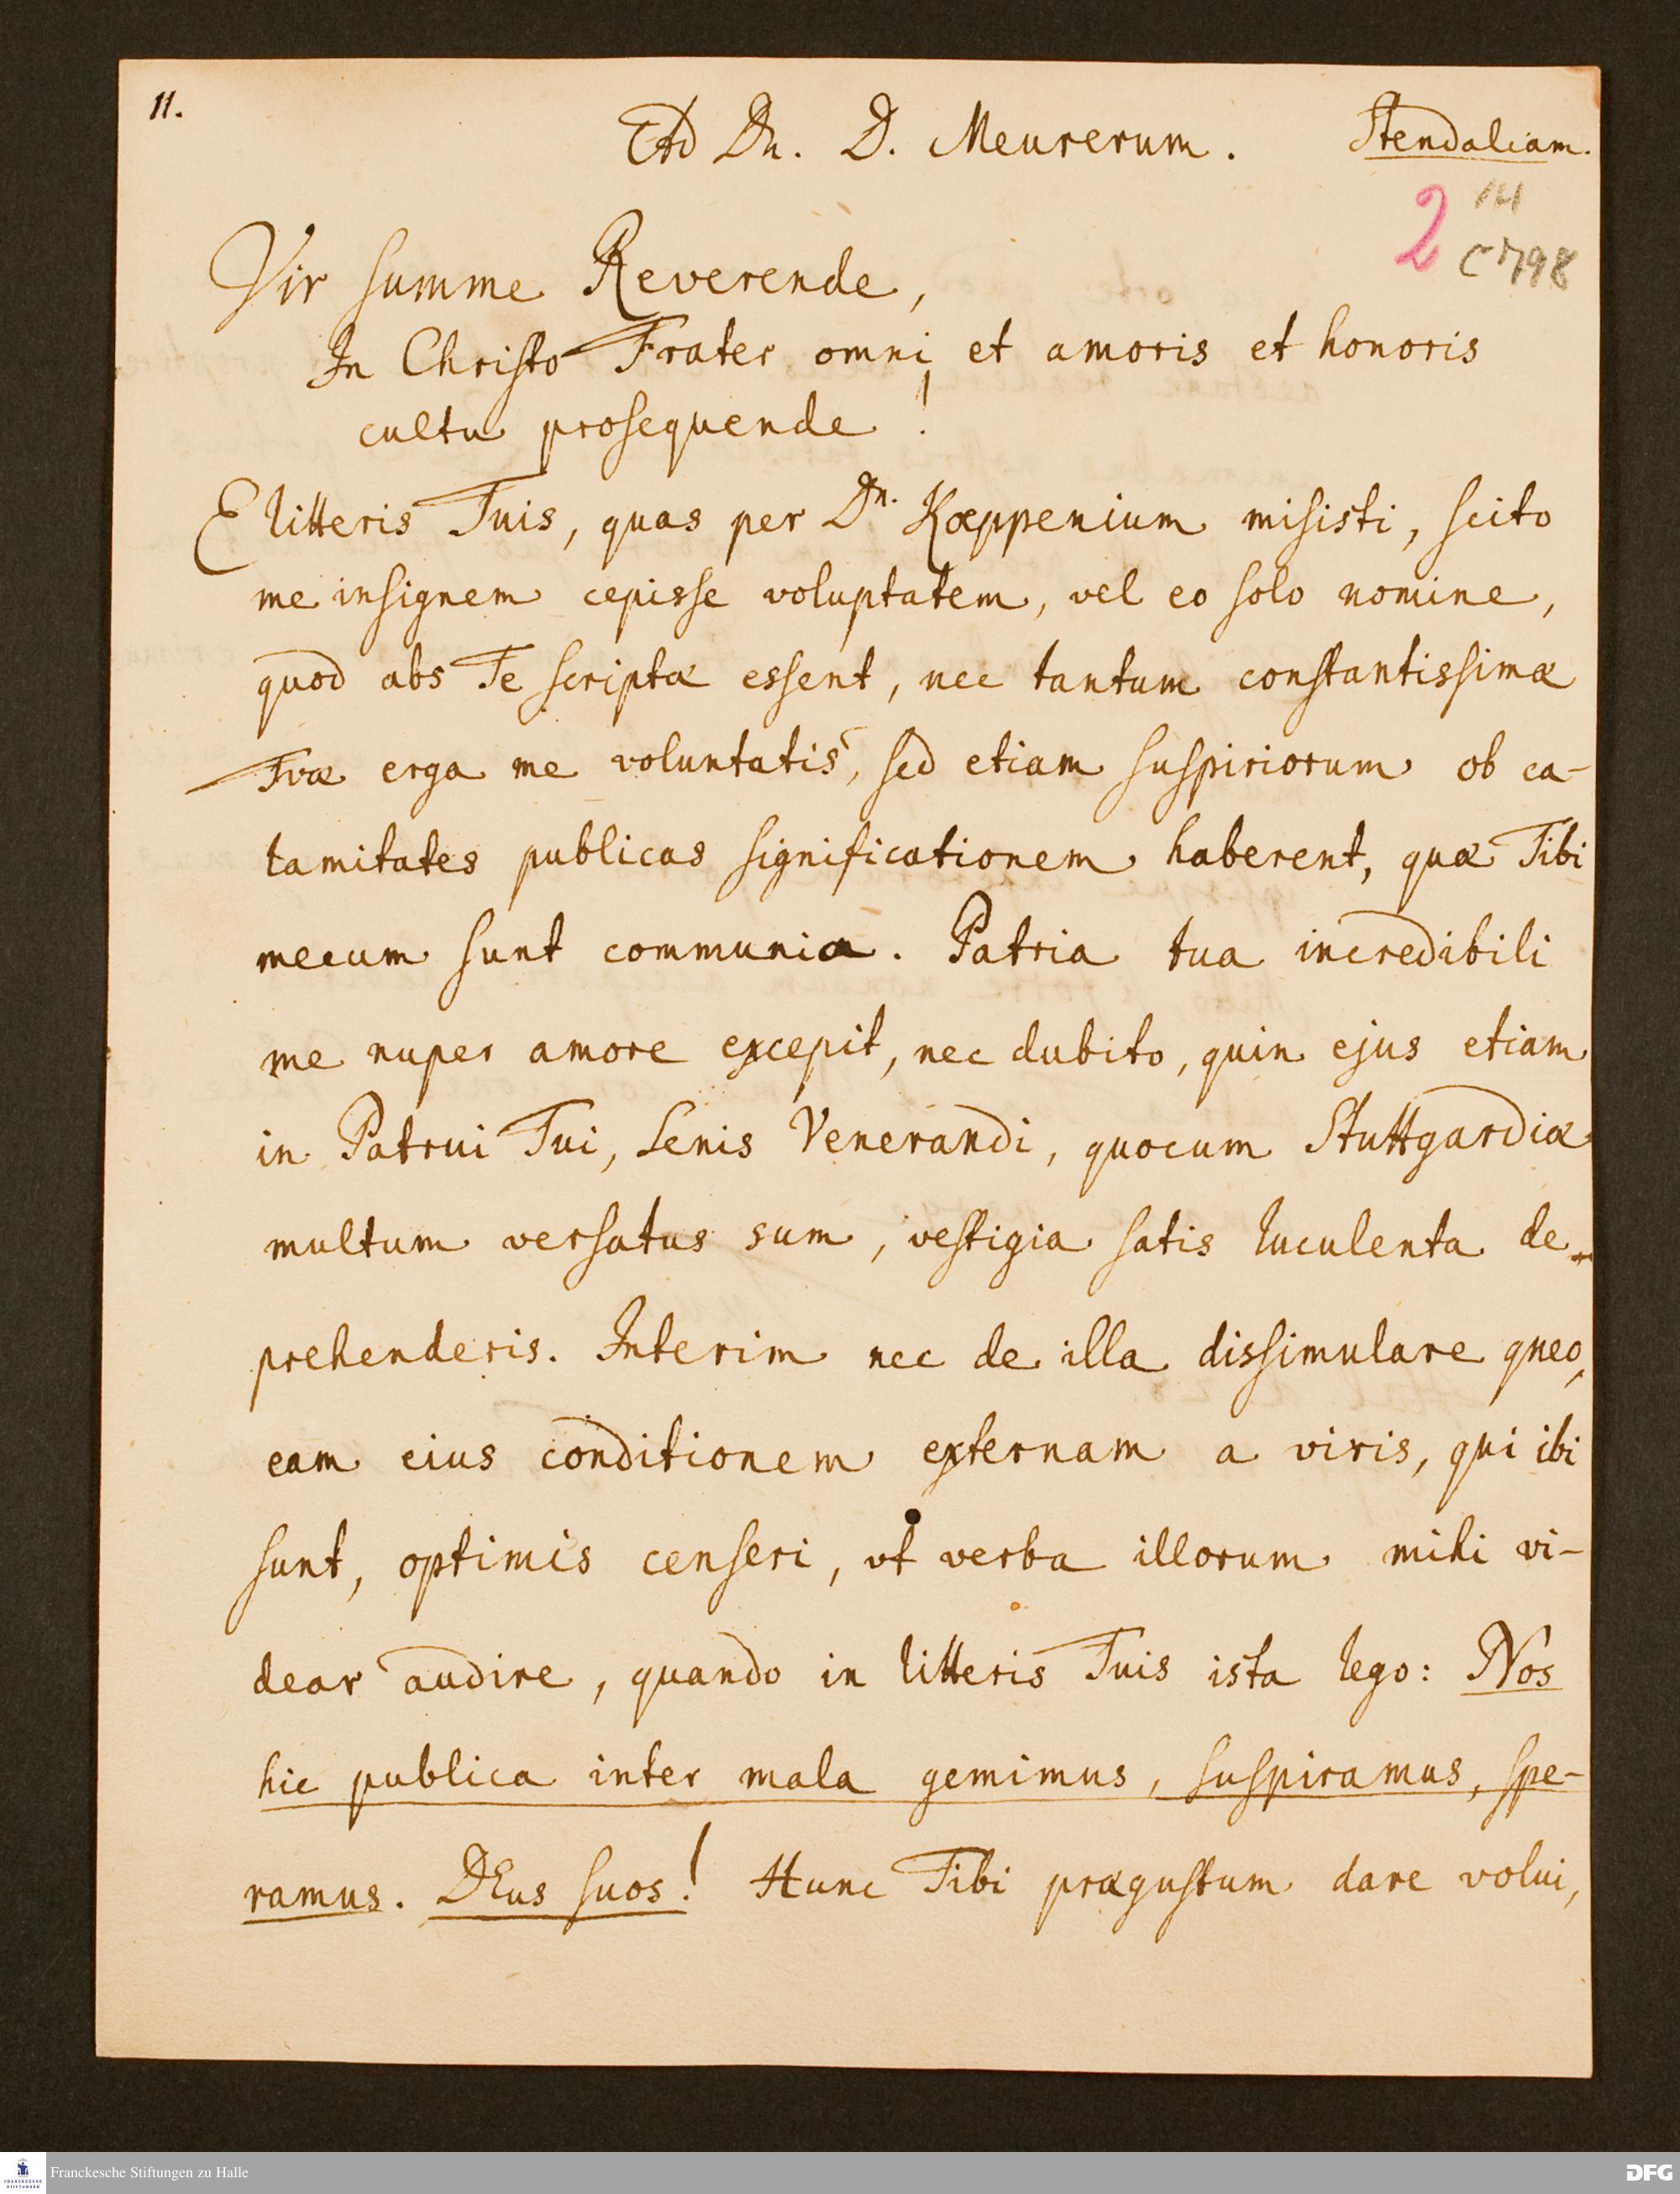 11.
Ad Dn. D. Meurerum. Stendaliam.
2 14
C 798
Vir summe Reverende,
In Christo Frater omni et amoris et honoris
cultu prosequende!
E litteris Tuis, quas per Dn. Kœppenium misisti, scito
me insignem cepisse voluptatem, vel eo solo nomine,
quod abs Te scriptæ essent, nec tantum constantissimæ
Tvæ erga me voluntatis, sed etiam suspiriorum ob ca-
lamitates publicas significationem haberent, quæ Tibi
mecum sunt communia. Patria tua incredibili
me nuper amore excepit, nec dubito, quin ejus etiam
in Patrui Tui, Senis Venerandi, quocum Stuttgardiæ
multum versatus sum, vestigia satis luculenta de-
prehenderis. Interim nec de illa dissimulare queo,
eam eius conditionem externam a viris, qui ibi
sunt, optimis censeri, vt verba illorum mihi vi-
dear audire, quando in litteris Tuis ista lego: Nos
hic publica inter mala gemimus, suspiramus, spe-
ramus. DEus suos! Hunc Tibi prægustum dare volui,
Franckesche Stiftungen zu Halle
FRANCKESCHE
STIFTUNGEN
DFG